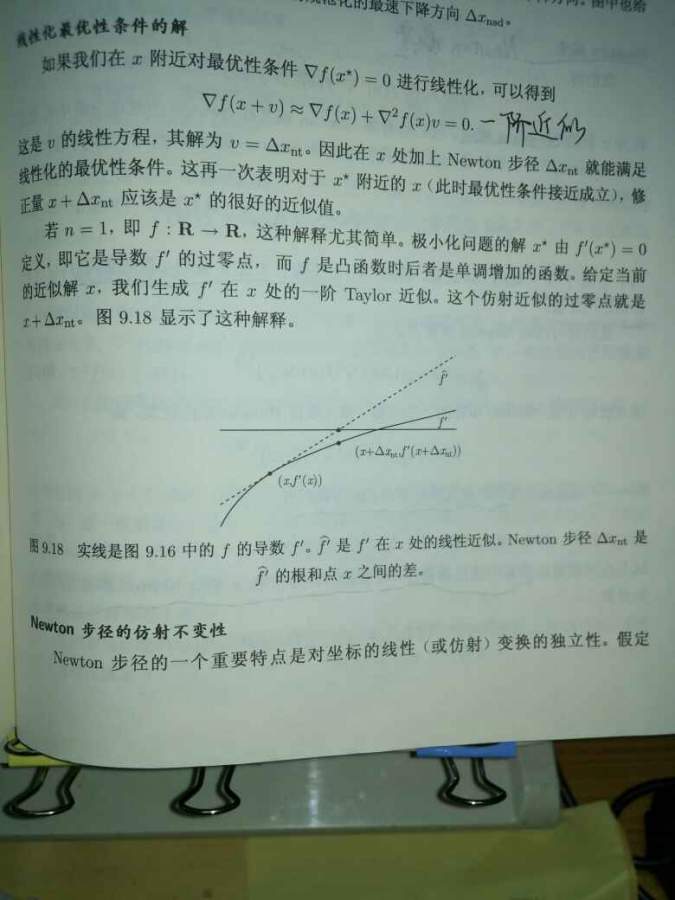 的最速下降方向 Δx_nsd。
线性化最优性条件的解
如果我们在 x 附近对最优性条件 ∇f(x*) = 0 进行线性化，可以得到
∇f(x + v) ≈ ∇f(x) + ∇²f(x)v = 0. 一阶近似
这是 v 的线性方程，其解为 v = Δx_nt。因此在 x 处加上 Newton 步径 Δx_nt 就能满足
线性化的最优性条件。这再一次表明对于 x* 附近的 x（此时最优性条件接近成立），修
正量 x + Δx_nt 应该是 x* 的很好的近似值。
若 n = 1，即 f : R → R，这种解释尤其简单。极小化问题的解 x* 由 f′(x*) = 0
定义，即它是导数 f′ 的过零点，而 f 是凸函数时后者是单调增加的函数。给定当前
的近似解 x，我们生成 f′ 在 x 处的一阶 Taylor 近似。这个仿射近似的过零点就是
x+Δx_nt。图 9.18 显示了这种解释。
f̂′
f′
(x+Δx_nt, f′(x+Δx_nt))
(x, f′(x))
图 9.18 实线是图 9.16 中的 f 的导数 f′。f̂′ 是 f′ 在 x 处的线性近似。Newton 步径 Δx_nt 是
f̂′ 的根和点 x 之间的差。
Newton 步径的仿射不变性
Newton 步径的一个重要特点是对坐标的线性（或仿射）变换的独立性。假定